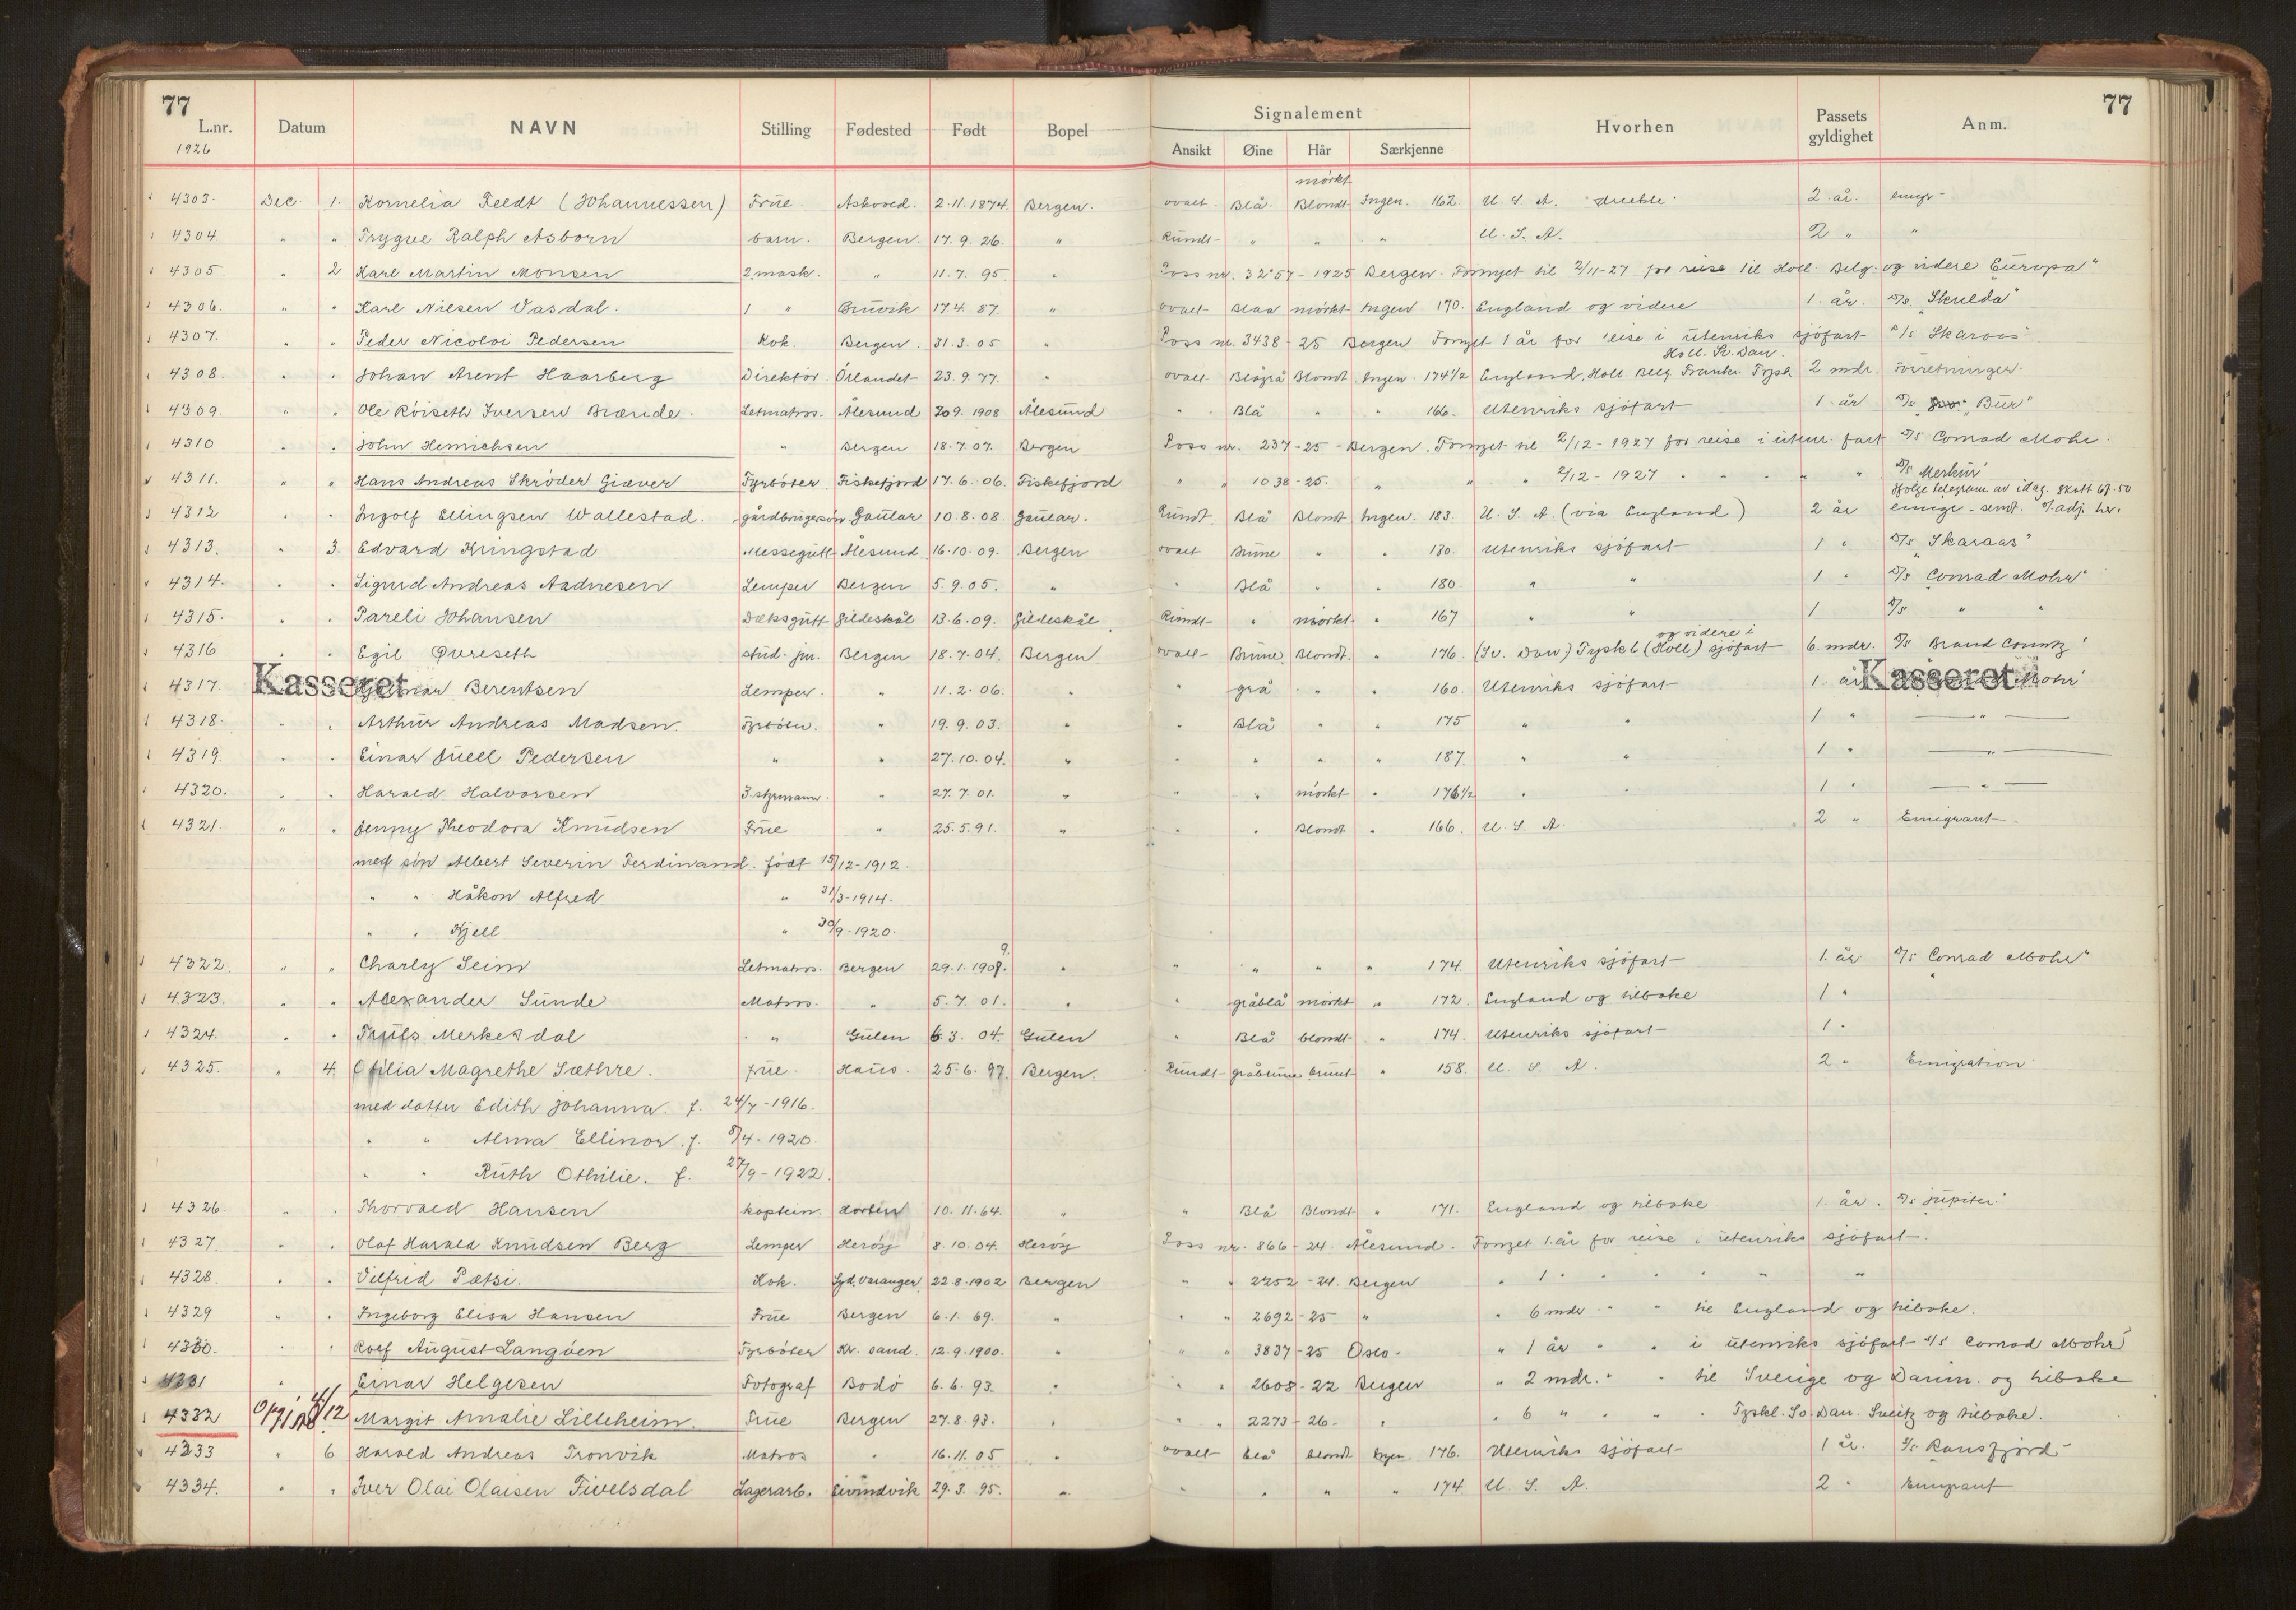 77 77
L.nr. Datum NAVN Stilling Fødested Født Bopel Signalement Hvorhen Passets gyldighet Anm.
1926 Ansikt Øine Hår Særkjenne
mörkt
4303. Dec. 1. Kornelia Feedt (Johannessen) Frue. Askvoed. 2.11.1874. Bergen. ovalt Blå. Blondt Ingen. 162. U. S. A. 2 år. emigr
4304 " " Trygve Ralph Asborn barn. Bergen. 17.9.26. " Rundt " " " U. S. A. 2 " "
4305. " 2 Karl Martin Monsen 2 mask. " 11.7.95 " Pass nr. 3257 - 1925 Bergen. Fornyet til 2/11-27 for reise til Holl. Belg. og videre "Europa"
4306. " " Karl Nilsen Vasdal. 1 " Bruvik 17.4.87. " ovalt Blaa mörkt Ingen 170. England og videre 1 år. D/S "Skulda"
4307. " " Peder Nicolai Pedersen Kok. Bergen. 31.3.05 " Pass nr. 3438 - 25 Bergen Fornyet 1 år for reise i utenriks sjöfart D/S Skaraas
Holl. Sv. Dan.
4308. " " Johan Arent Haarberg Direktör. Örlandet 23.9.77. " ovalt. Blågrå Blondt Ingen 174 1/2 England, Holl. Belg. Frankr. Tysk 2 mdr. Forretninger.
4309. " " Ole Röiseth Iversen Brænde. Letmatros. Ålesund 20 9. 1908 Ålesund " Blå " " 166. Utenriks sjöfart 1 år D/S "Bur"
4310 " " John Henrichsen " Bergen 18.7.07. Bergen Pass nr. 237 - 25 - Bergen. Fornyet til 2/12 - 1927 for reise i utenr. fart D/S Conrad Mohr.
4311. " " Hans Andreas Skröder Giæver Fyrböter Fiskefjord 17.6.06. Fiskefjord " " 1038 - 25. " " " 2/12 - 1927 " " " " " D/S Merkur
Ifölge telegram av idag. skatt 67.50
4312 " " Ingolf Ellingsen Wallestad. gårdbrugersön Gaular 10.8.08. Gaular. Rundt Blå Blondt Ingen. 183. U. S. A. (via England) 2 år emigr - sendt.
4313. " 3. Edvard Kringstad Messegutt Ålesund. 16.10.09. Bergen ovalt Brune " " 170. Utenriks sjöfart 1 " D/S "Skaraas"
4314. " " Sigurd Andreas Aadnesen Lemper Bergen 5.9.05. " " Blå " " 180. " " 1 " D/S "Conrad Mohr"
4315. " " Pareli Johansen Dæksgutt Gildeskål 13.6.09. Gildeskål Rundt " mörkt " 167 " " 1 D/S " "
og videre i
4316 " " Egil Qvreseth stud. jur. Bergen 18.7.04. Bergen ovalt Brune Blondt. " 176. (Sv. Dan) Tyskl (Holl) sjöfart 6. mdr. D/S Brand County
4317. Kasseret Berentsen Lemper. " 11.2.06. " " grå " " 160. Utenriks sjöfart 1. år Kasseret Mohr
4318. " " Arthur Andreas Madsen. Fyrböter. " 19.9.03. " " Blå " " 175 " " 1 " "
4319. " " Einar Juell Pedersen " " 27.10.04. " " " " " 187. " " 1 " "
4320. " " Harald Halvorsen 3. styrmann. " 27.7.01. " " " mörkt " 176 1/2 " " 1 " "
4321. " " Jenny Theodora Knudsen Frue " 25.5.91. " " " Blondt " 166. U. S. A. 2 " Emigrant.
med sön Albert Severin Ferdinand. född 15/12-1912.
" " Håkon Alfred " 31/3-1914.
" " Kjell " 30/9-1920.
9.
4322. " " Charly Seim Letmatros. Bergen 29.1.1908. " " " " " 174. Utenriks sjöfart 1 år D/S Conrad Mohr"
4323. " " Alexander Sunde Matros. " 5.7.01. " " gråblå mörkt " 172. England og tilbake 1 " "
4324. " " Truls Merkesdal " Gulen 6 3. 04. Gulen " Blå blondt " 174. Utenriks sjöfart 1 "
4325. " 4. Otilia Magrethe Sæthre. frue. Haus. 25.6.97. Bergen. Rundt gråbrune brunt " 158. U. S. A. 2 " Emigration
med datter Edith Johanna. f. 24/7 - 1916.
" " Alma Ellinor. f. 8/4 - 1920.
" " Ruth Othilie. f. 27/9 - 1922.
4326. " " Thorvald Hansen kaptein. Horten 10.11.64. " " Blå Blondt " 171. England og tilbake 1. år. D/S Jupiter.
4327. " " Olaf Harald Knudsen Berg Lemper Heröy 8.10.04. Heröy Pass nr. 866 - 24. Ålesund. Fornyet 1 år for reise i utenriks sjöfart.
4328. " " Vilfrid Patsi. Kok. Syd. Varanger. 22.8.1902 Bergen " " 2252 - 24. Bergen " 1 " " " " "
4329 " " Ingeborg Elisa Hansen Frue Bergen 6.1.69. " " " 2692 - 25 " " 6 mdr " " til England og tilbake.
4330. " " Rolf August Langöen Fyrböter Kr. sand. 12.9.1900. " " " 3837 - 25 Oslo. " 1 år " " i utenriks sjöfart D/S Conrad Mohr
4331 " Einar Helgesen Fotograf Bodö 6.6.93. " " " 2608 - 22 Bergen " 2 mdr. " " til Sverige og Danm. og tilbake
4332 4/12 Margit Amalie Lilleheim. Frue Bergen 27.8.93. " " " 2273 - 26. " " 6 " " " " Tyskl. Sv. Dan. Sveitz og tilbake.
4333 " 6 Harald Andreas Tronvik Matros " 16.11.05 " ovalt blå blondt Ingen 176. Utenriks sjöfart 1 år. D/S Ransfjord
4334. " " Iver Olai Olaisen Fivelsdal Lagerarb. Eivindvik 29.3.95. " " " " " 174. U. S. A. 2 " Emigrant